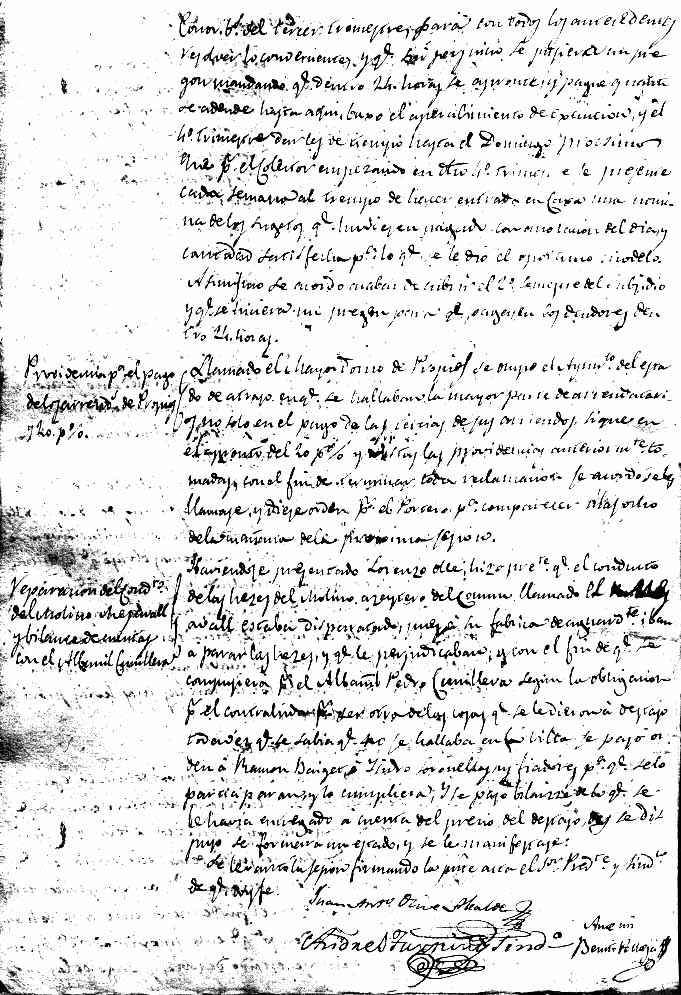 del tercer trimestre, para con todos los antecedentes
resolver lo conveniente, y qᵉ sin perjuicio se pusiera un pre
gon mandando qᵉ dentro 24 horas se apronte, y pague quanto
se adeude hasta aqui, baxo el apercibimiento de execucion, y el
4º trimestre darles de tiempo hasta el Domingo proximo
Que pʳ el Colector empezando en dho 4º trimestre se le presente
cada semana al tiempo de hacer entrada en Caxa una nomi
na de los sugetos qᵉ hubiesen pagado con anotacion del dia, y
cantidad satisfecha pᵃ lo qᵉ se le dió el oportuno modelo.
Asimismo se acordó acabar de cubrir el 2º semestre del subsidio
y qᵉ se hiciera un pregon para qᵉ paguen los deudores den
tro 24 horas.
Providencia pᵃ el pago
de los arrendos de Propios
y 20 p%.
Llamado el Mayordomo de Propios se enteró el Ayuntᵗᵒ del esta
do de atraso en qᵉ se hallaban la mayor parte de arrendatari
os no solo en el pago de las tercias de sus arriendos sigue en
el apronto del 20 p% y vistas las providencias anteriormᵗᵉ to
madas, con el fin de terminar toda reclamacion se acordó se les
llamase, y diese orden pʳ el Portero pᵃ comparecer a las ocho
de la mañana de la proxima sesion.
Reparacion del Condᵗᵒ
del Molino
y bilance de cuentas
con el Albañil Cunillera
Haviendose presentado Lorenzo hizo pretᵉ qᵉ el conducto
de las hezes del Molino azeytero del Comun llamado
avall estaba disparatado, pues á su fabrica de aguardᵗᵉ iban
a parar las hezes, y qᵉ le perjudicaban, y con el fin de qᵉ se
compusiera pʳ el Albañil Pedro Cunillera segun la obligacion
pʳ el contrahida por ser otra de las cosas qᵉ se le dieron á destajo
toda vez qᵉ se sabia qᵉ no se hallaba en la Villa se pasó or
den á Ramon Baiges, é Isidro Soronellas, sus fiadores pᵃ qᵉ se lo
participaran, y lo cumpliera, y se pasó bilance de lo qᵉ se
le havia entregado a cuenta del precio del destajo, y se dis
puso se formara un estado, y se le manifestase.
Se levantó la sesion firmando la presente acta el Sʳ Presᵗᵉ y Sindᶜᵒ
de qᵉ doy fe
Juan Antᵒ Olive Alcalde
Sindᵒ
Ante mi